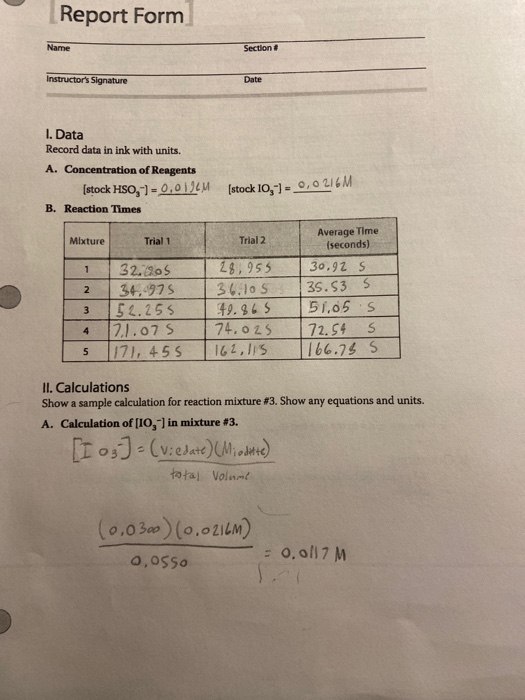 Report Form
Name Section #
Instructor's Signature Date
I. Data
Record data in ink with units.
A. Concentration of Reagents
[stock HSO₃⁻] = 0.0196M [stock IO₃⁻] = 0.0216M
B. Reaction Times
Mixture Trial 1 Trial 2 Average Time (seconds)
1 28.95s 30.92 s
2 34.97s 36.10s 35.53 s
3 52.25s 49.86s 51.05 s
4 71.07s 74.02s 72.54 s
5 171.45s 162.11s 166.78 s
II. Calculations
Show a sample calculation for reaction mixture #3. Show any equations and units.
A. Calculation of [IO₃⁻] in mixture #3.
[IO₃⁻] = (Viodate)(Miodate)
total Volume
(0.0300)(0.0216M)
0.0550 = 0.0117 M